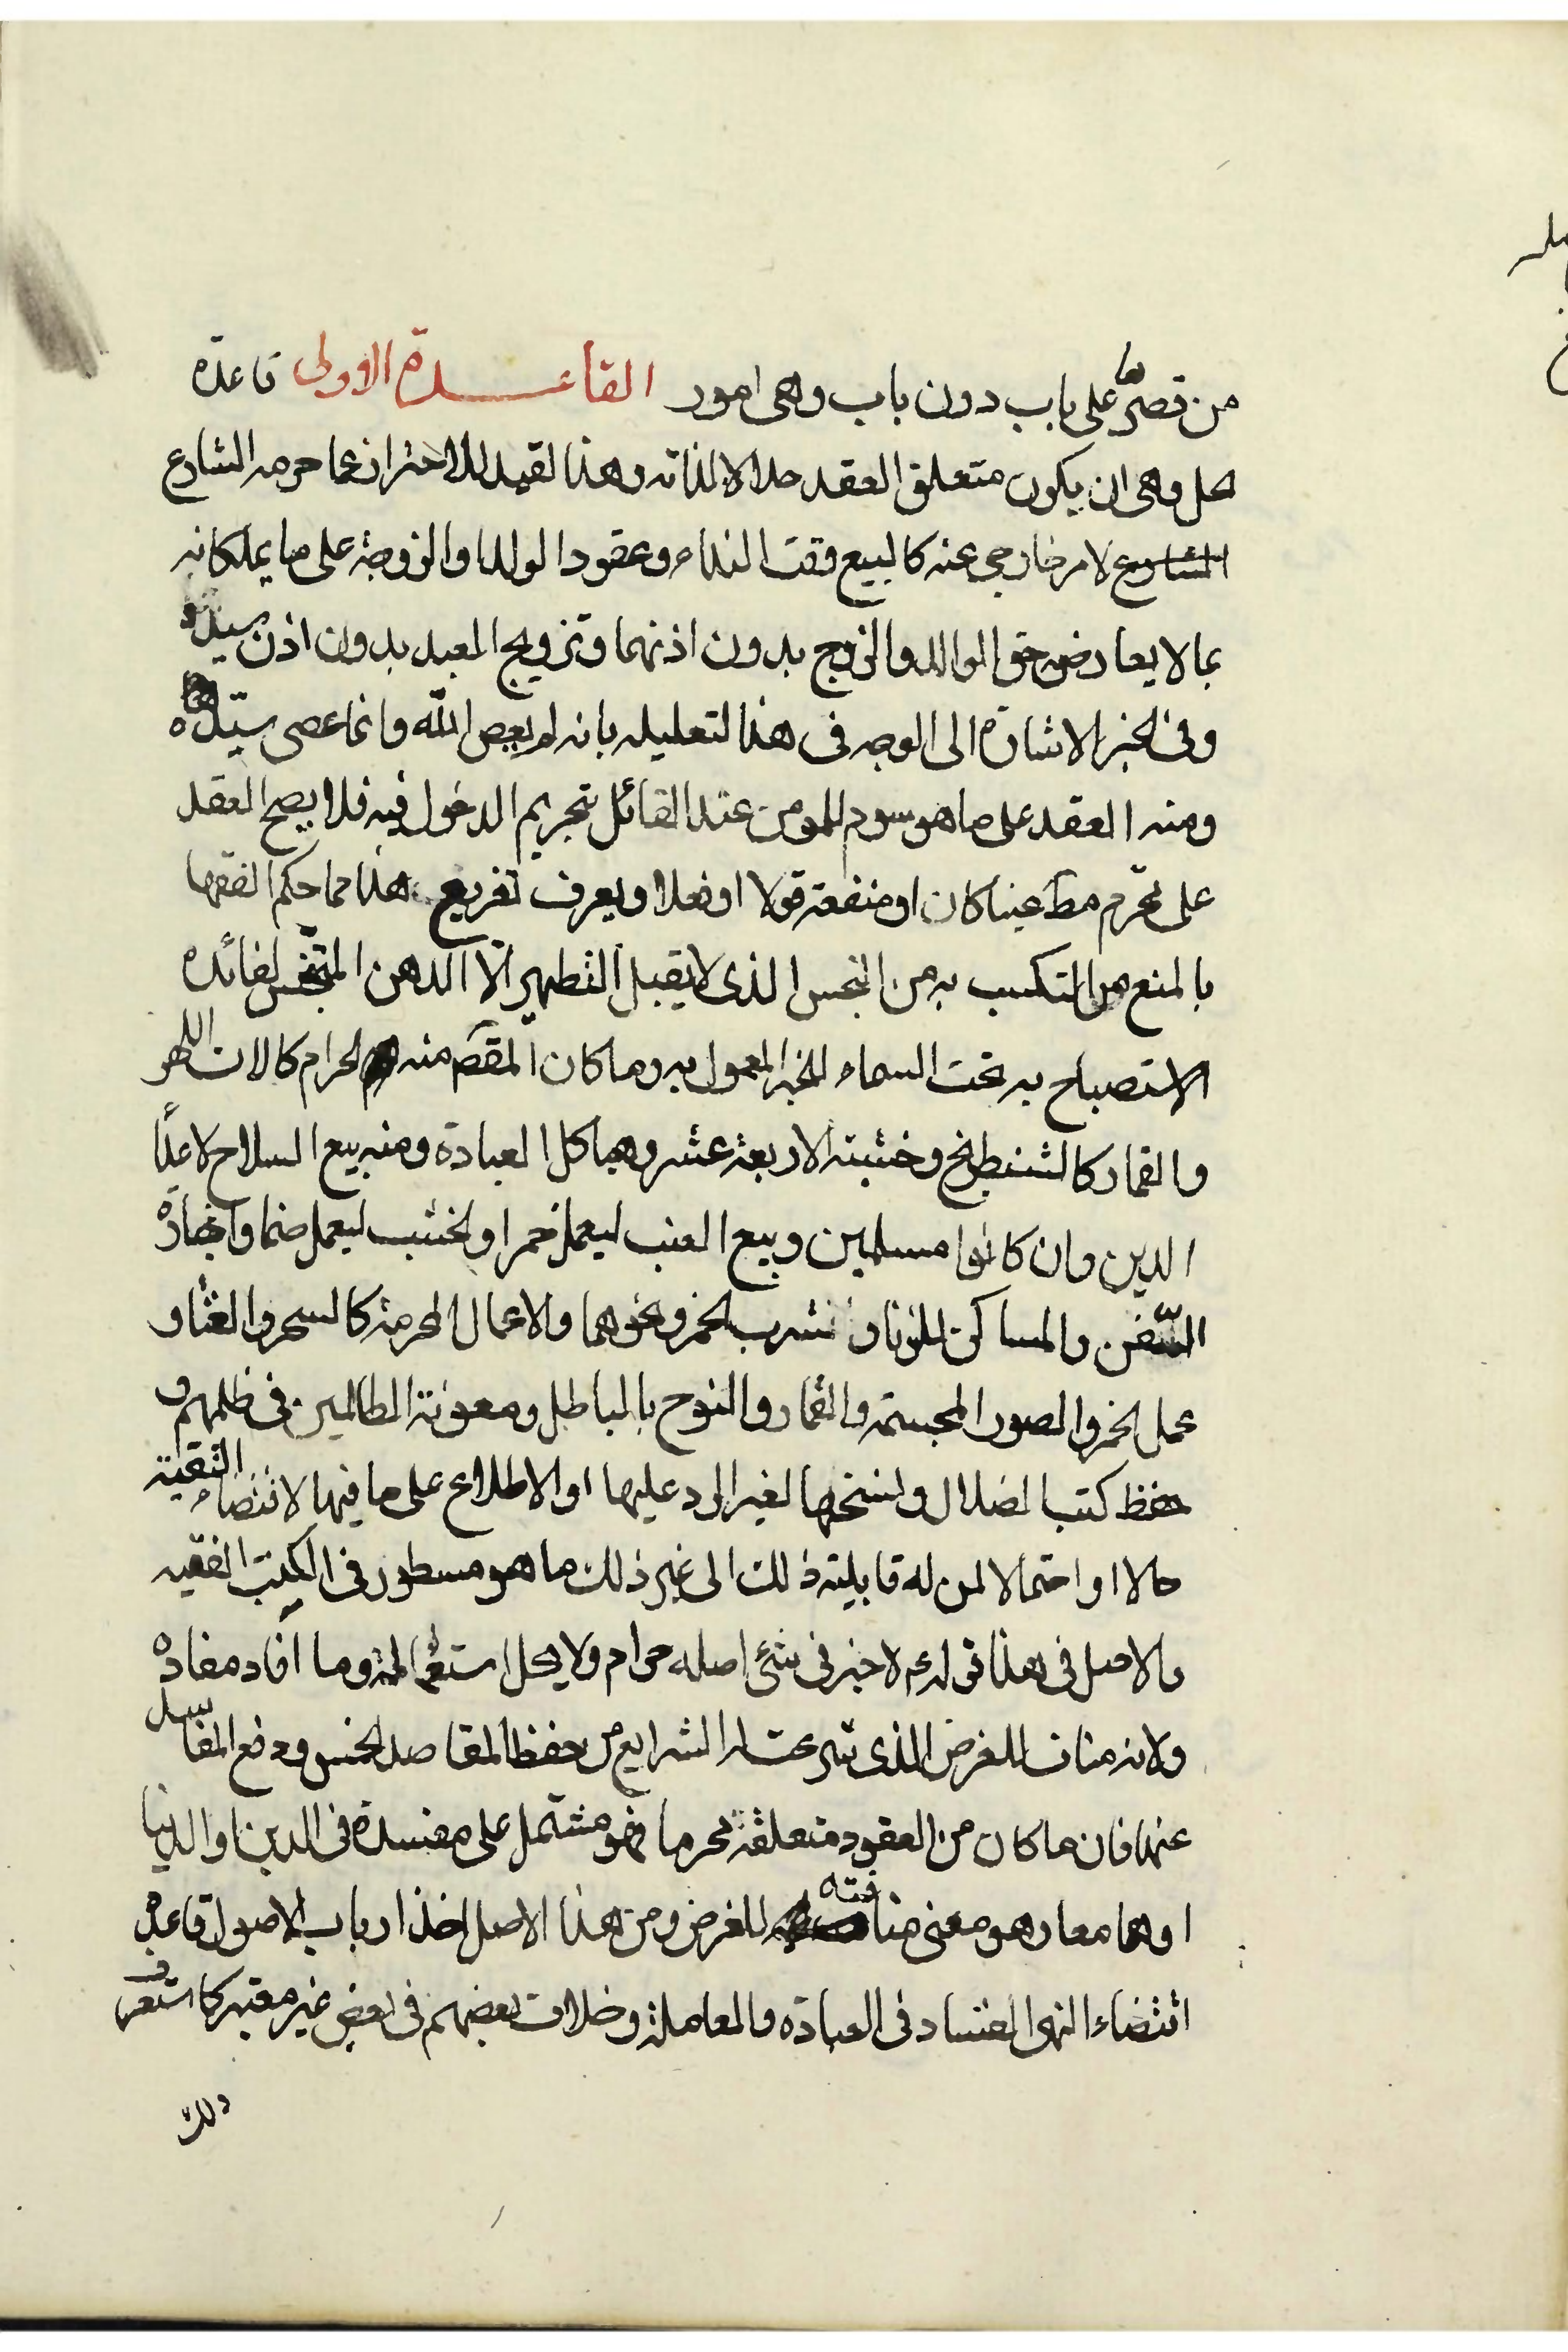 من قصرها على باب دون باب وهى امور القاعدة الاولى قاعدة
حل وهى ان يكون متعلق العقد حلالا لذاته وهذا لقيد للاحتراز عما حرمه الشارع
لامر خارجى عنه كالبيع وقت النداء وعقود الولد والزوجة على ما يملكانه
بما لا يعارض حق الوالد والزوج بدون اذنهما وتزويج العبد بدون اذن سيده
وفى الخبر الاشارة الى الوجه فى هذا لتعليله بانه لم يعص الله وانما عصى سيده
ومنه العقد على ما هو سوم للمومن عند القائل بتحريم الدخول فيه فلا يصح العقد
على محرم مط عينا كان او منفعة قولا او فعلا ويعرف تفريع هذا مما حكم الفقها
بالمنع من التكسب به من النجس الذى لا يقبل التطهير الا الدهن المتنجس لفائدة
الاستصباح به تحت السماء للخبر المعمول به وما كان المقصم منه الحرام كالات اللهو
والقمار كالشطرنج وخشبته الاربعة عشر وهياكل العبادة ومنه بيع السلاح لاعداء
الدين وان كانوا مسلمين وبيع العنب ليعمل خمرا والخشب ليعمل صنما واجارة
السفن والمساكن للزنا و شرب الخمر ونحوهما والاعمال المحرمة كالسحر والغنا و
عمل الخمر والصور المجسمة والقمار والنوح بالباطل ومعونة الظالمين فى ظلمهم و
حفظ كتب الضلال ونسخها لغير الرد عليها او الاطلاع على ما فيها لاقتضاء التقية
حالا او احتمالا لمن له قابلية ذلك الى غير ذلك ما هو مسطور فى الكتب الفقيه
والاصل فى هذا قوله ع لا خير فى شئ اصله حرام ولا يحل استعماله وما افاد مفاده
ولانه مناف للغرض الذى شرعت له الشرايع من حفظ المقاصد الخمس ودفع المفاسد
عنها فان ما كان من العقود متعلقة محرما فهو مشتمل على مفسدة فى الدين او الدنيا
او هما معا وهو معنى منافته للغرض ومن هذا الاصل اخذ ارباب الاصول قاعدة
اقتضاء النهى الفساد فى العبادة والمعاملة وخلاف بعضهم فى بعض غير معتبر كما ستعرف
ذلك